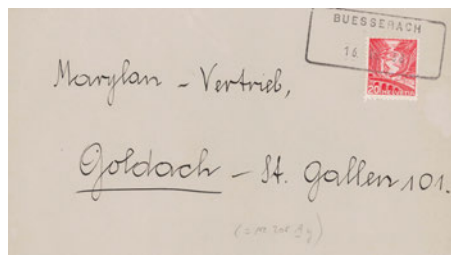 BUESSERACH
16.
20 HELVETIA
Marylan - Vertrieb,
Goldach - St. Gallen 101.